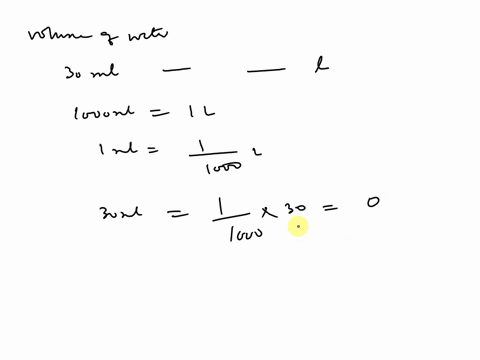 volume of water
30 ml — — l
1000ml = 1 L
1 ml = 1/1000 L
30ml = 1/1000 x 30 = 0